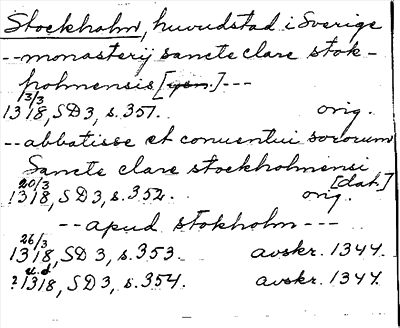 Stockholm, huvudstad i Sverige
-- monasterij sancte clare stok-
holmensis [gen.] ---
3/3
1318, SD 3, s. 351. orig.
-- abbatisse et conuentui sororum
Sancte clare stockholmensi
[dat.]
20/3
1318, SD 3, s. 352. orig.
-- apud stokholm ---
26/3
1318, SD 3, s. 353. avskr. 1344.
u.d.
? 1318, SD 3, s. 354. avskr. 1344.